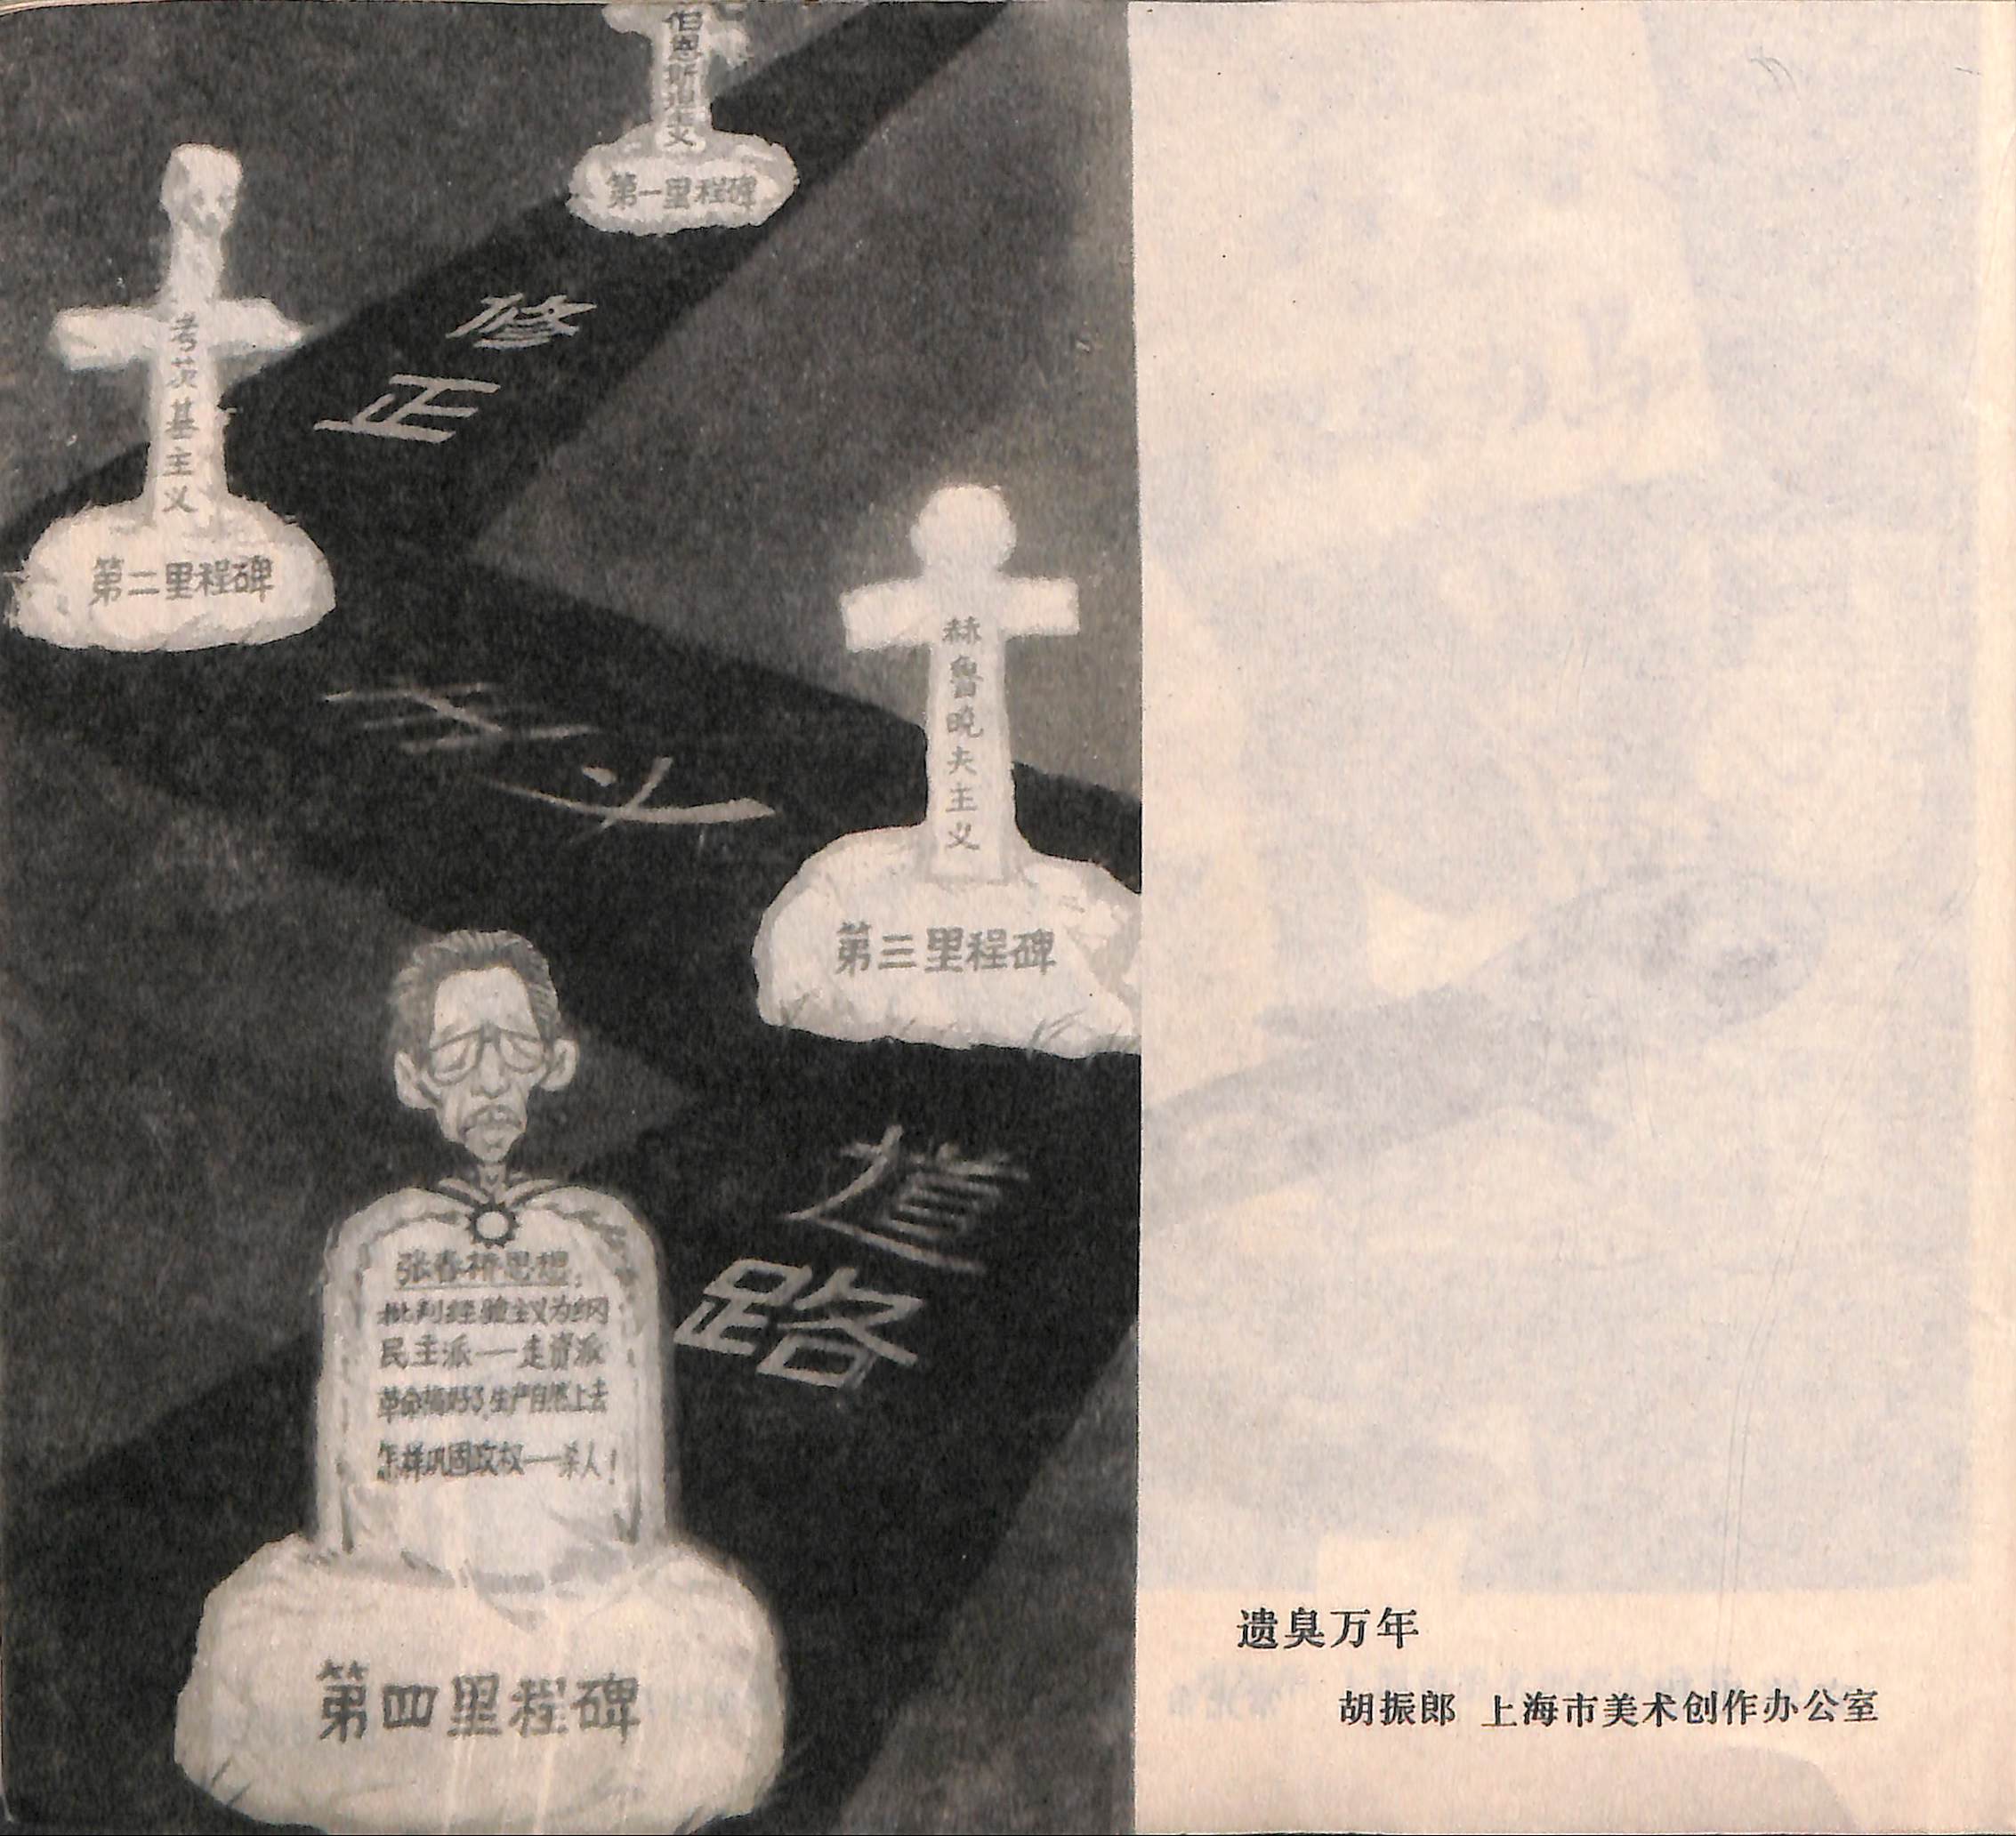 伯恩斯坦主义
第一里程碑
考茨基主义
第二里程碑
赫鲁晓夫主义
第三里程碑
修正主义道路
张春桥思想：
批判经验主义为纲
民主派——走资派
革命搞好了,生产自然上去
怎样巩固政权——杀人！
第四里程碑
遗臭万年
胡振郎 上海市美术创作办公室